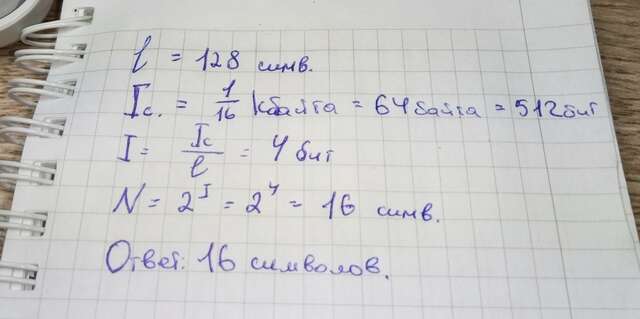 l = 128 симв.
Ic. = 1/16 Кбайта = 64 байта = 512 бит
I = Ic/l = 4 бит
N = 2^I = 2^4 = 16 симв.
Ответ: 16 символов.